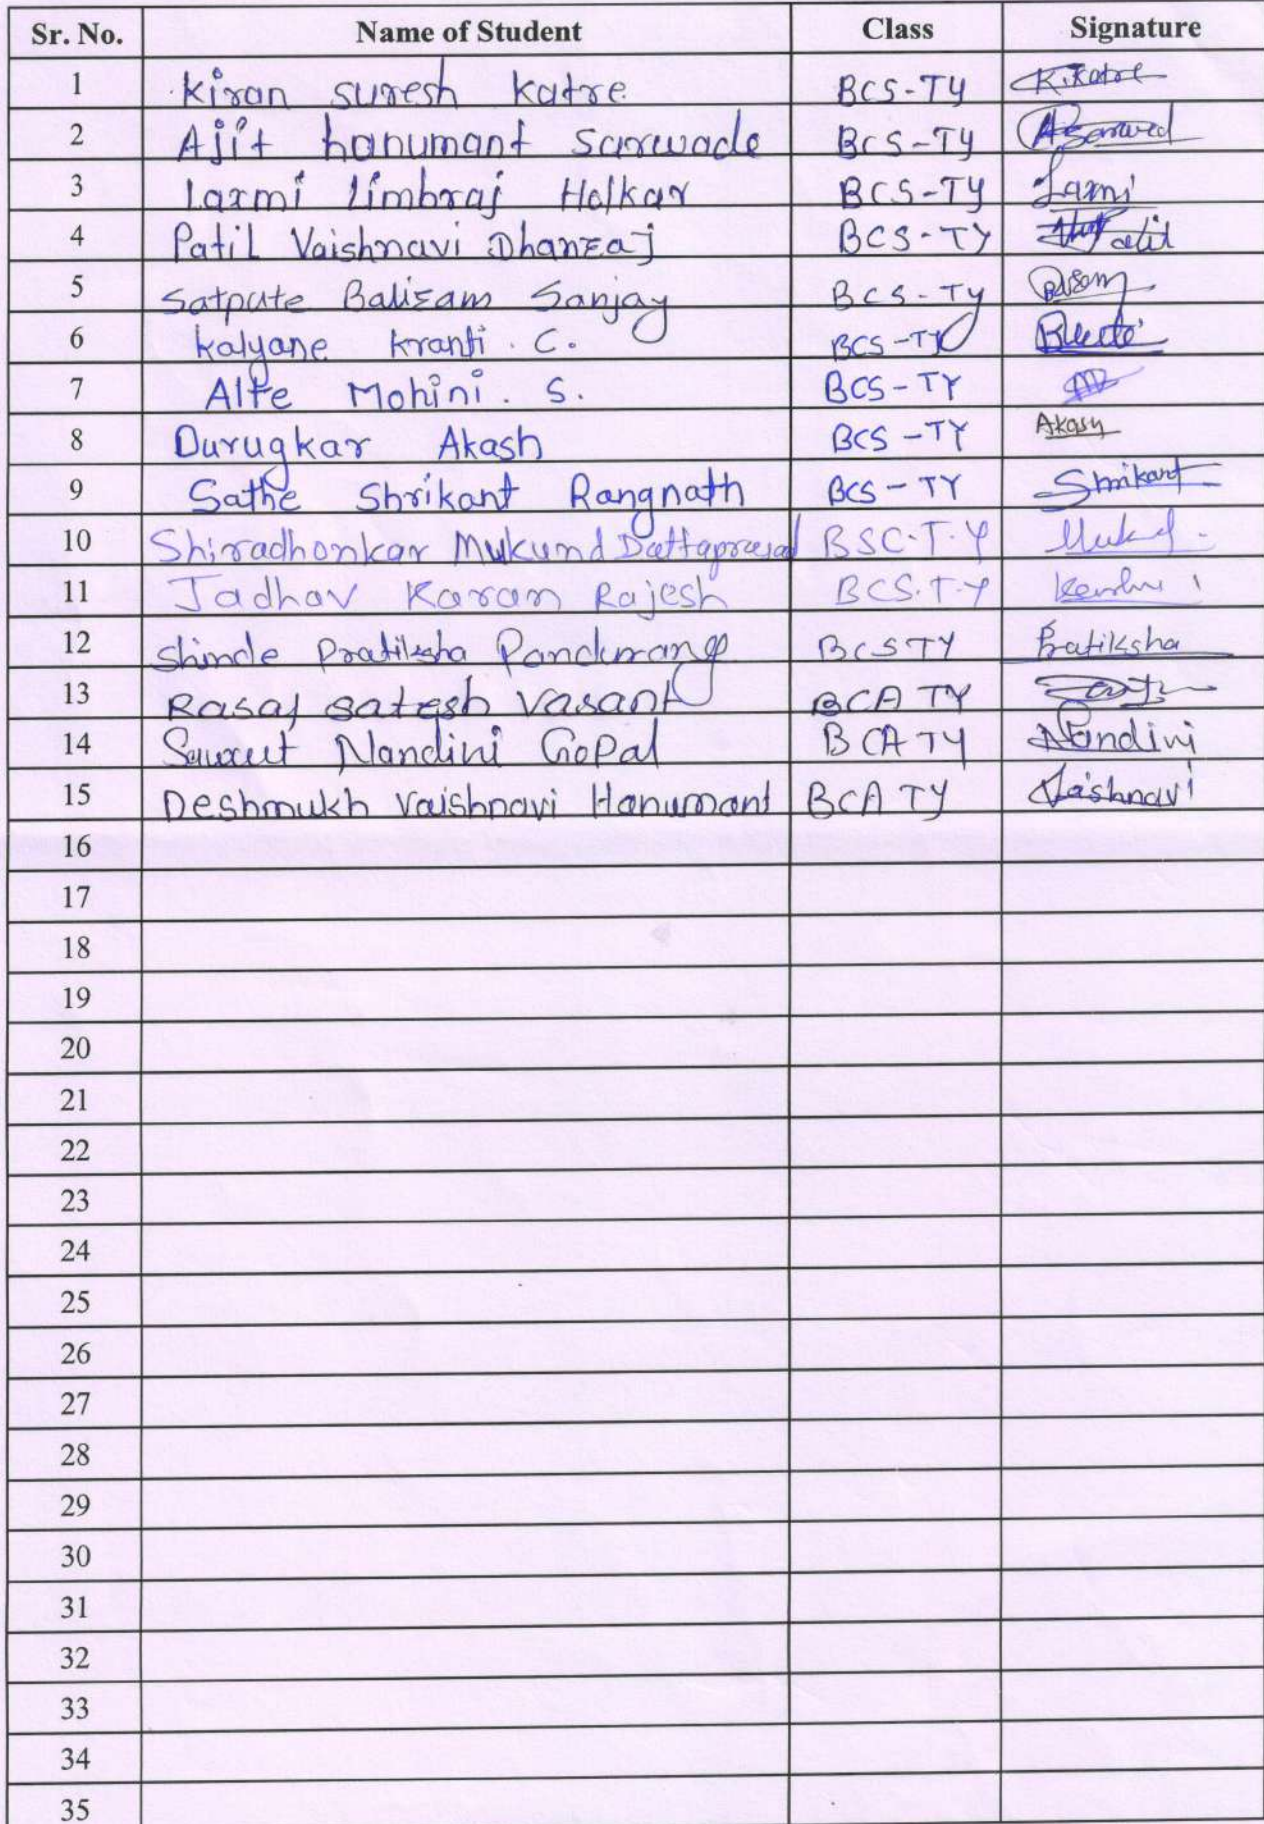 Sr. No. Name of Student Class Signature
1 Kiran suresh Katre BCS-TY K.Katre
2 Ajit hanumant sarwade BCS-TY
3 Laxmi limbraj Holkar BCS-TY Laxmi
4 Patil Vaishnavi Dhanraj BCS-TY
5 Satpute Baliram Sanjay BCS-TY
6 Kalyane Kranti. C. BCS-TY
7 Alte Mohini. S. BCS-TY
8 Durugkar Akash BCS-TY Akash
9 Sathe Shrikant Rangnath BCS-TY Shrikant
10 Shiradhonkar Mukund Dattaprasad BSC.T.Y
11 Jadhav Karan Rajesh BCS.T.Y
12 Shinde Pratiksha Pandurang BCSTY Pratiksha
13 Rasaj satesh Vasant BCA TY
14 Nandini GoPal BCA TY Nandini
15 Deshmukh Vaishnavi Hanumant BCA TY Vaishnavi
16
17
18
19
20
21
22
23
24
25
26
27
28
29
30
31
32
33
34
35